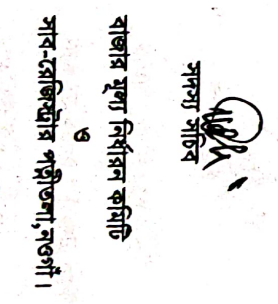 সদস্য সচিব
বাজার মূল্য নির্ধারন কমিটি
ও
সাব-রেজিষ্ট্রার পত্নীতলা,নওগাঁ।